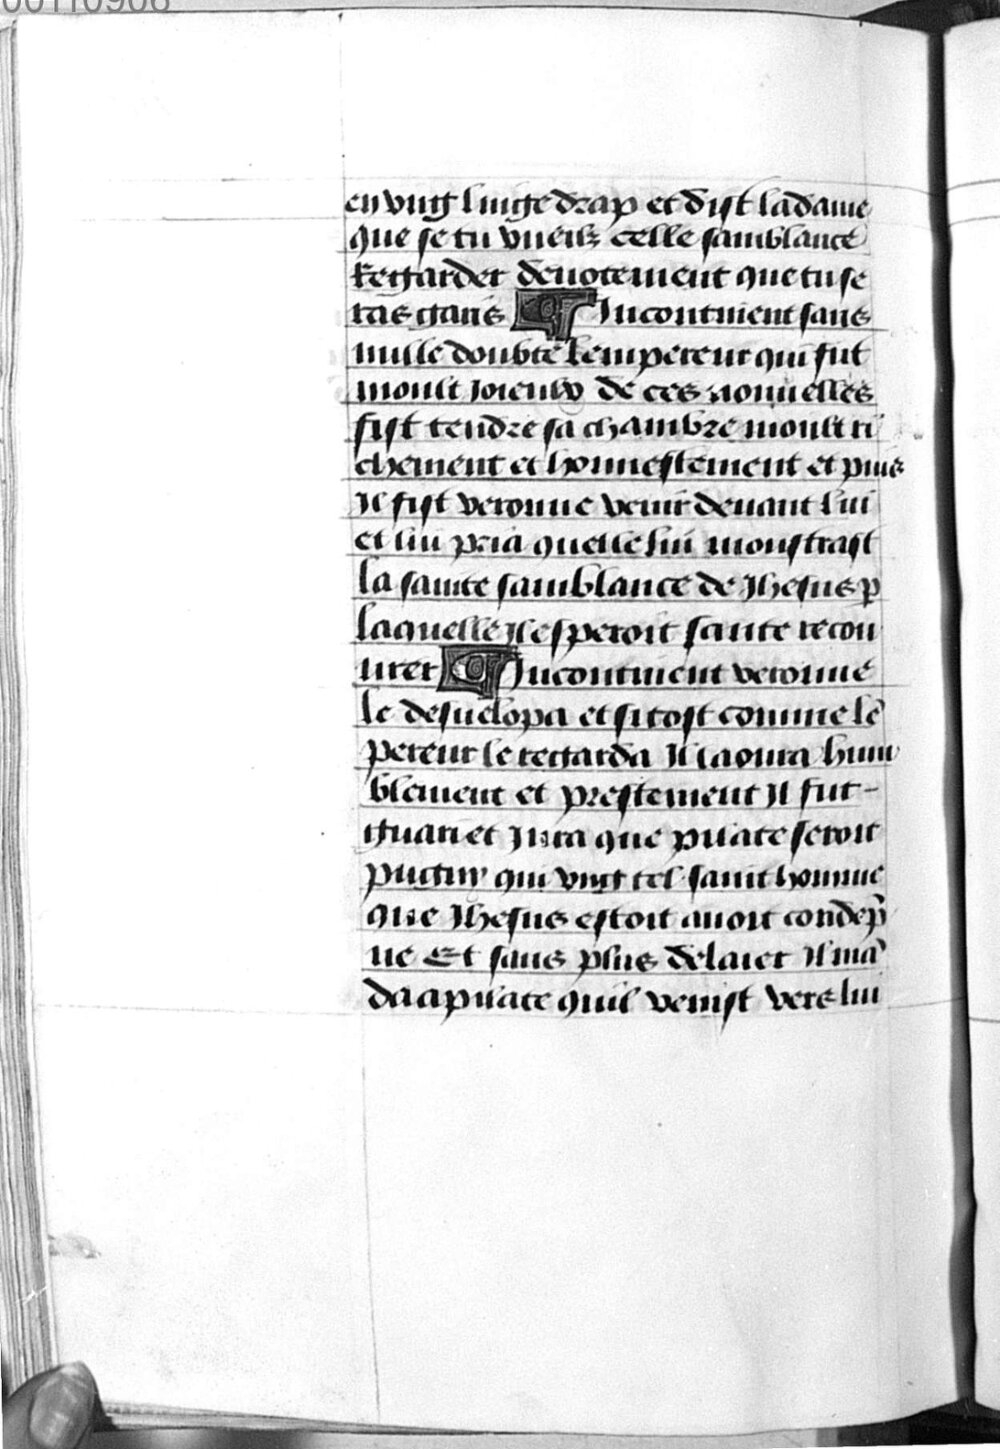 00110908
en vng linge drap et dist la dame
que se tu vueilz celle samblance
Regarder deuotement que tu se
ras garis ¶ Incontinent sans
nulle doubte lempereur qui fut
moult Joieulx de ces nouuelles
fist tendre sa chambre moult ri
chement et honnestement et puis
Il fist veronne venir deuant lui
et lui pria quelle lui monstrast
la sainte samblance de Jhesus p
laquelle Il esperoit sante recou
urer ¶ Incontinent veronne
le desuelopa et si tost comme lẽ
pereur le regarda Il laoura hum
blement et prestement Il fut
guari et Jura que pilate seroit
pugny qui vng tel saint homme
que Jhesus estoit auoit condep̃
ne Et sans plus delaier Il mã
da a pilate quil venist vers lui